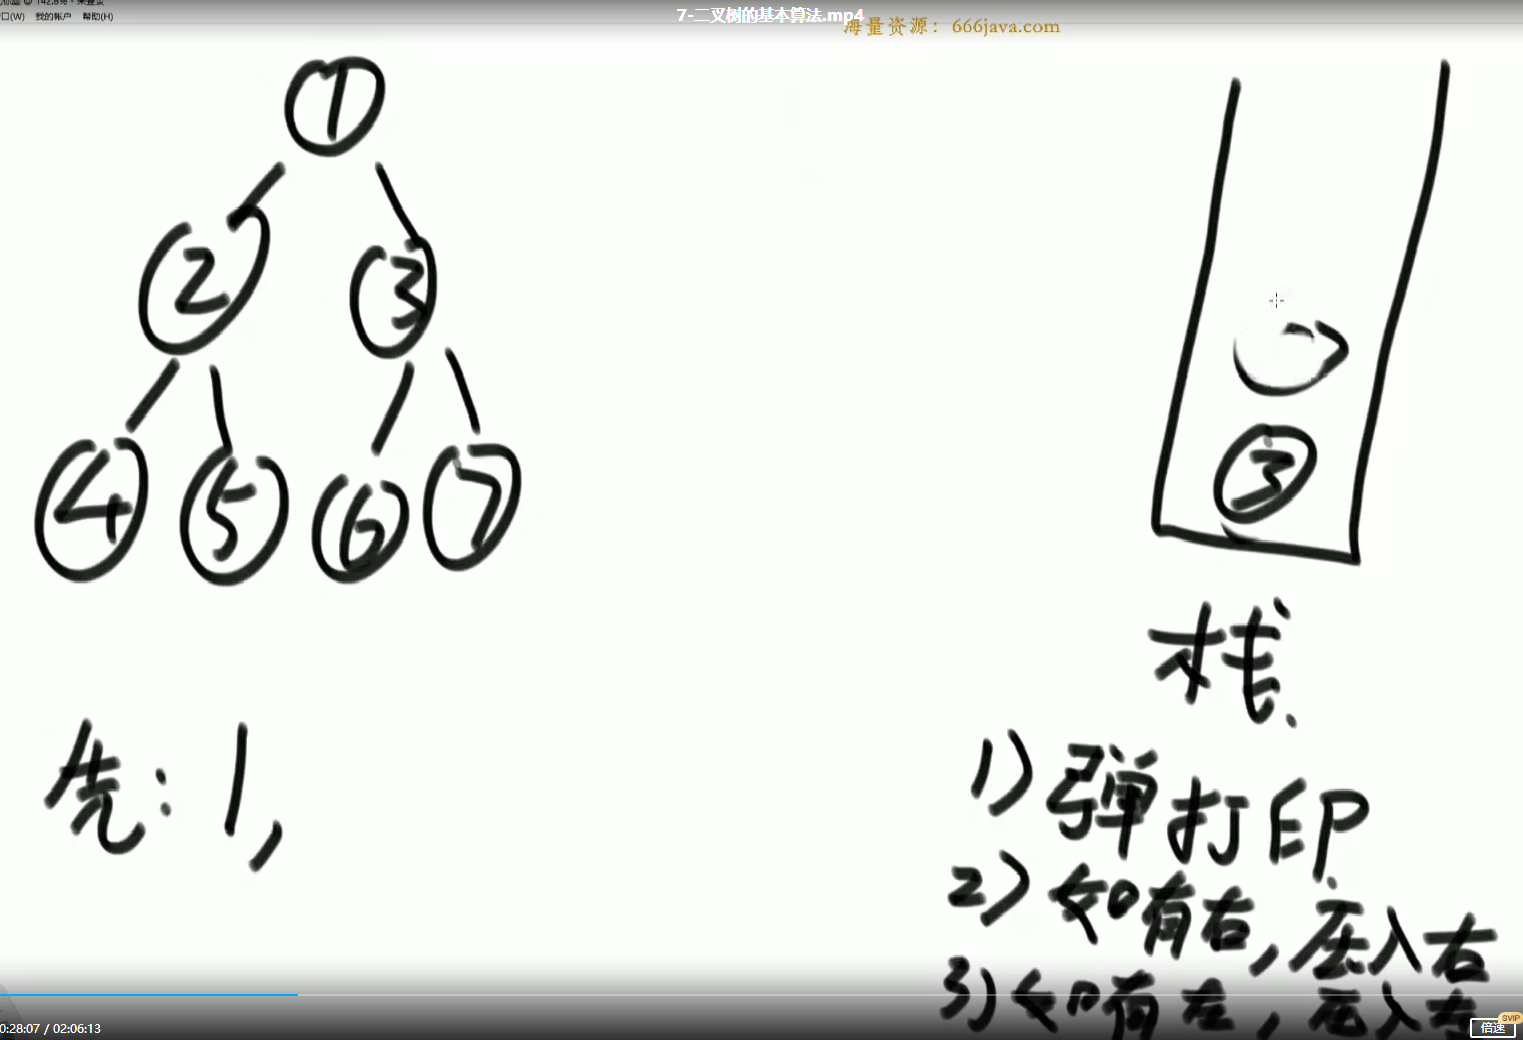 口(W) 我的帐户 帮助(H)
7-二叉树的基本算法.mp4
海量资源：666java.com
1
2 3
4 5 6 7
3
栈
先：1,
1) 弹打印
2) 如有右，压入右
3) 如有左，压入左
0:28:07 / 02:06:13
SVIP
倍速